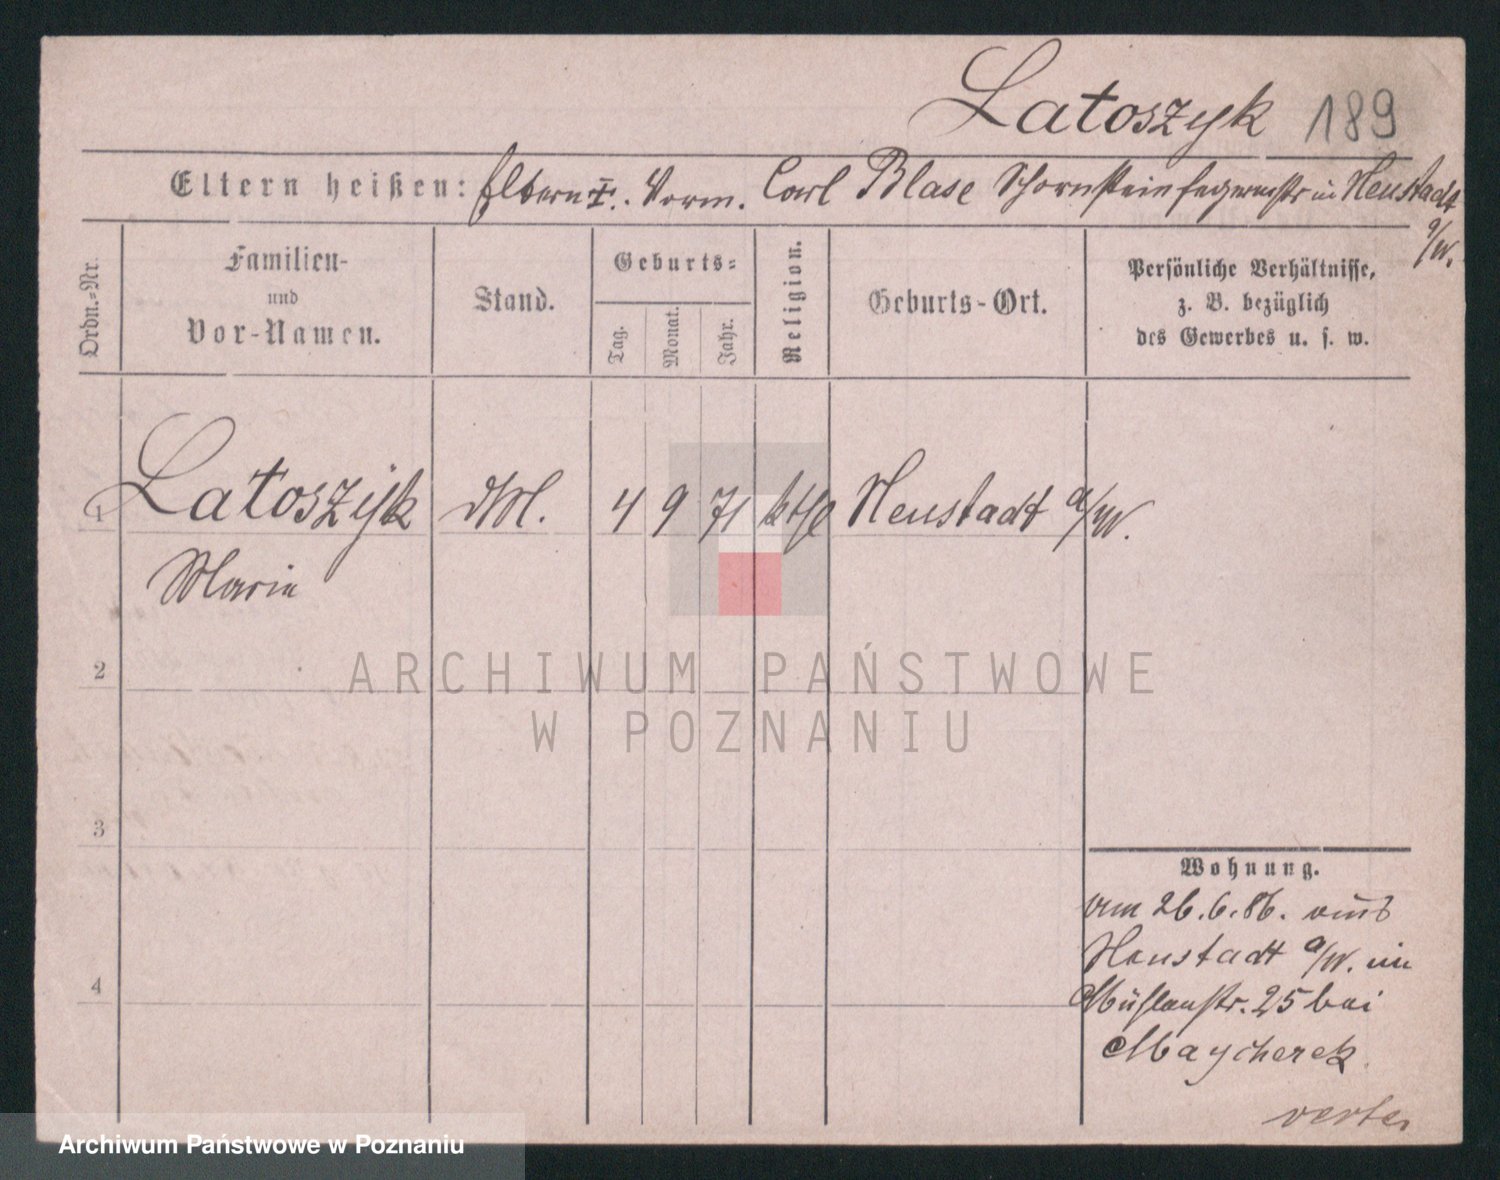 Latoszyk 189
Eltern heißen: Eltern †. Vorm. Carl Blase Schornsteinfegermstr in Neustadt
a/W.
Ordn.=Nr.
Familien-
und
Vor-Namen.
Stand.
Geburts=
Tag.
Monat.
Jahr.
Religion.
Geburts-Ort.
Persönliche Verhältnisse,
z. B. bezüglich
des Gewerbes u. s. w.
1 Latoszyk 4 9 71 kthl Neustadt a/W.
Marie
2
3
4
Wohnung.
vom 26.6.86. aus
Neustadt a/W. in
Mühlenstr. 25 bei
Maycherek
ARCHIWUM PAŃSTWOWE
W POZNANIU
Archiwum Państwowe w Poznaniu